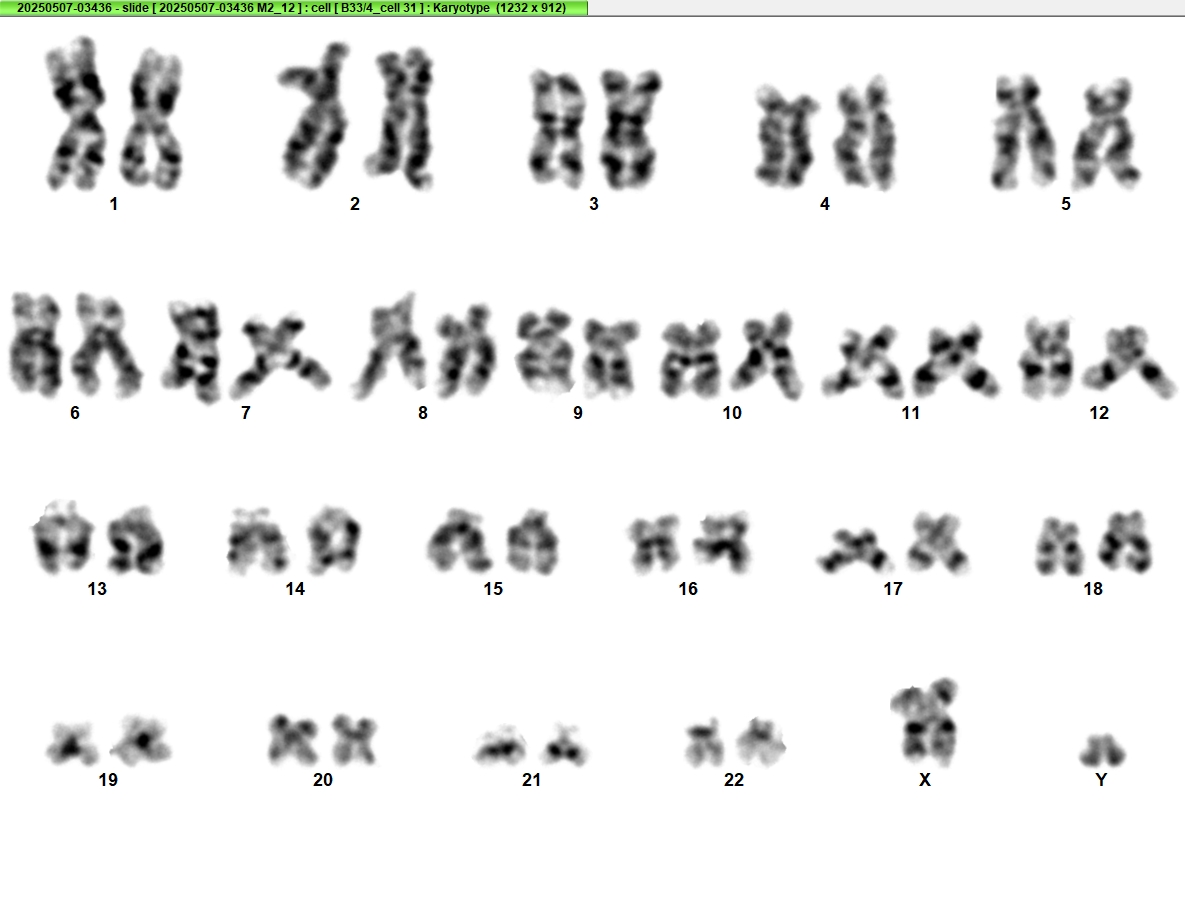 20250507-03436 - slide [ 20250507-03436 M2_12 ] : cell [ B33/4_cell 31 ] : Karyotype (1232 x 912)
1 2 3 4 5
6 7 8 9 10 11 12
13 14 15 16 17 18
19 20 21 22 X Y